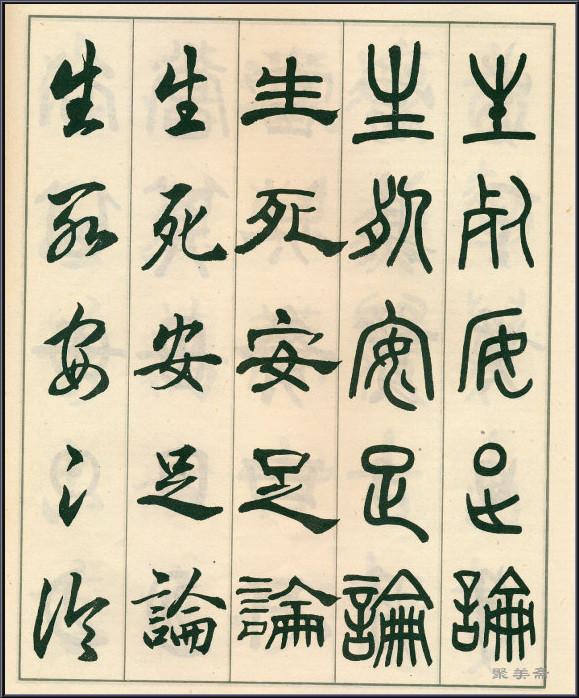 生死安足論
生死安足論
生死安足論
生死安足論
生死安足論
聚美斋